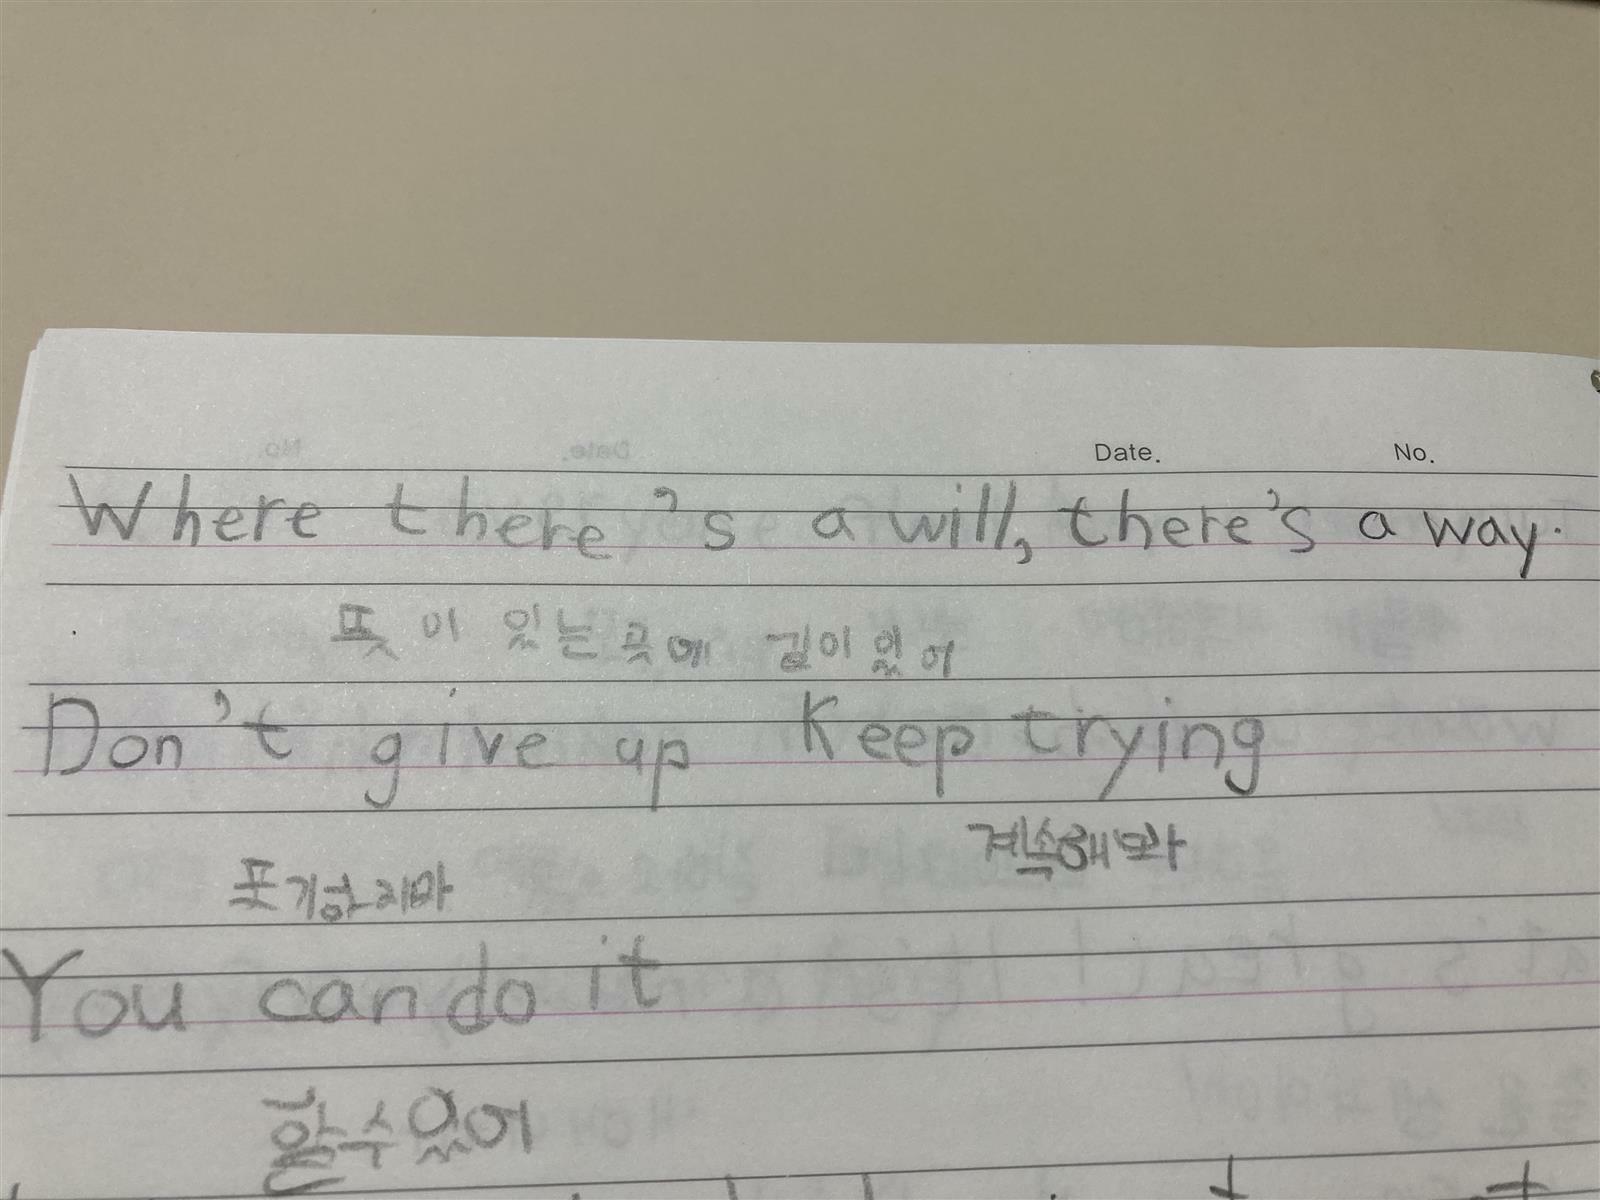 Date. No.
Where there's a will, there's a way.
뜻이 있는 곳에 길이 있어
Don't give up Keep trying
계속해봐
포기하지마
You can do it
할수있어